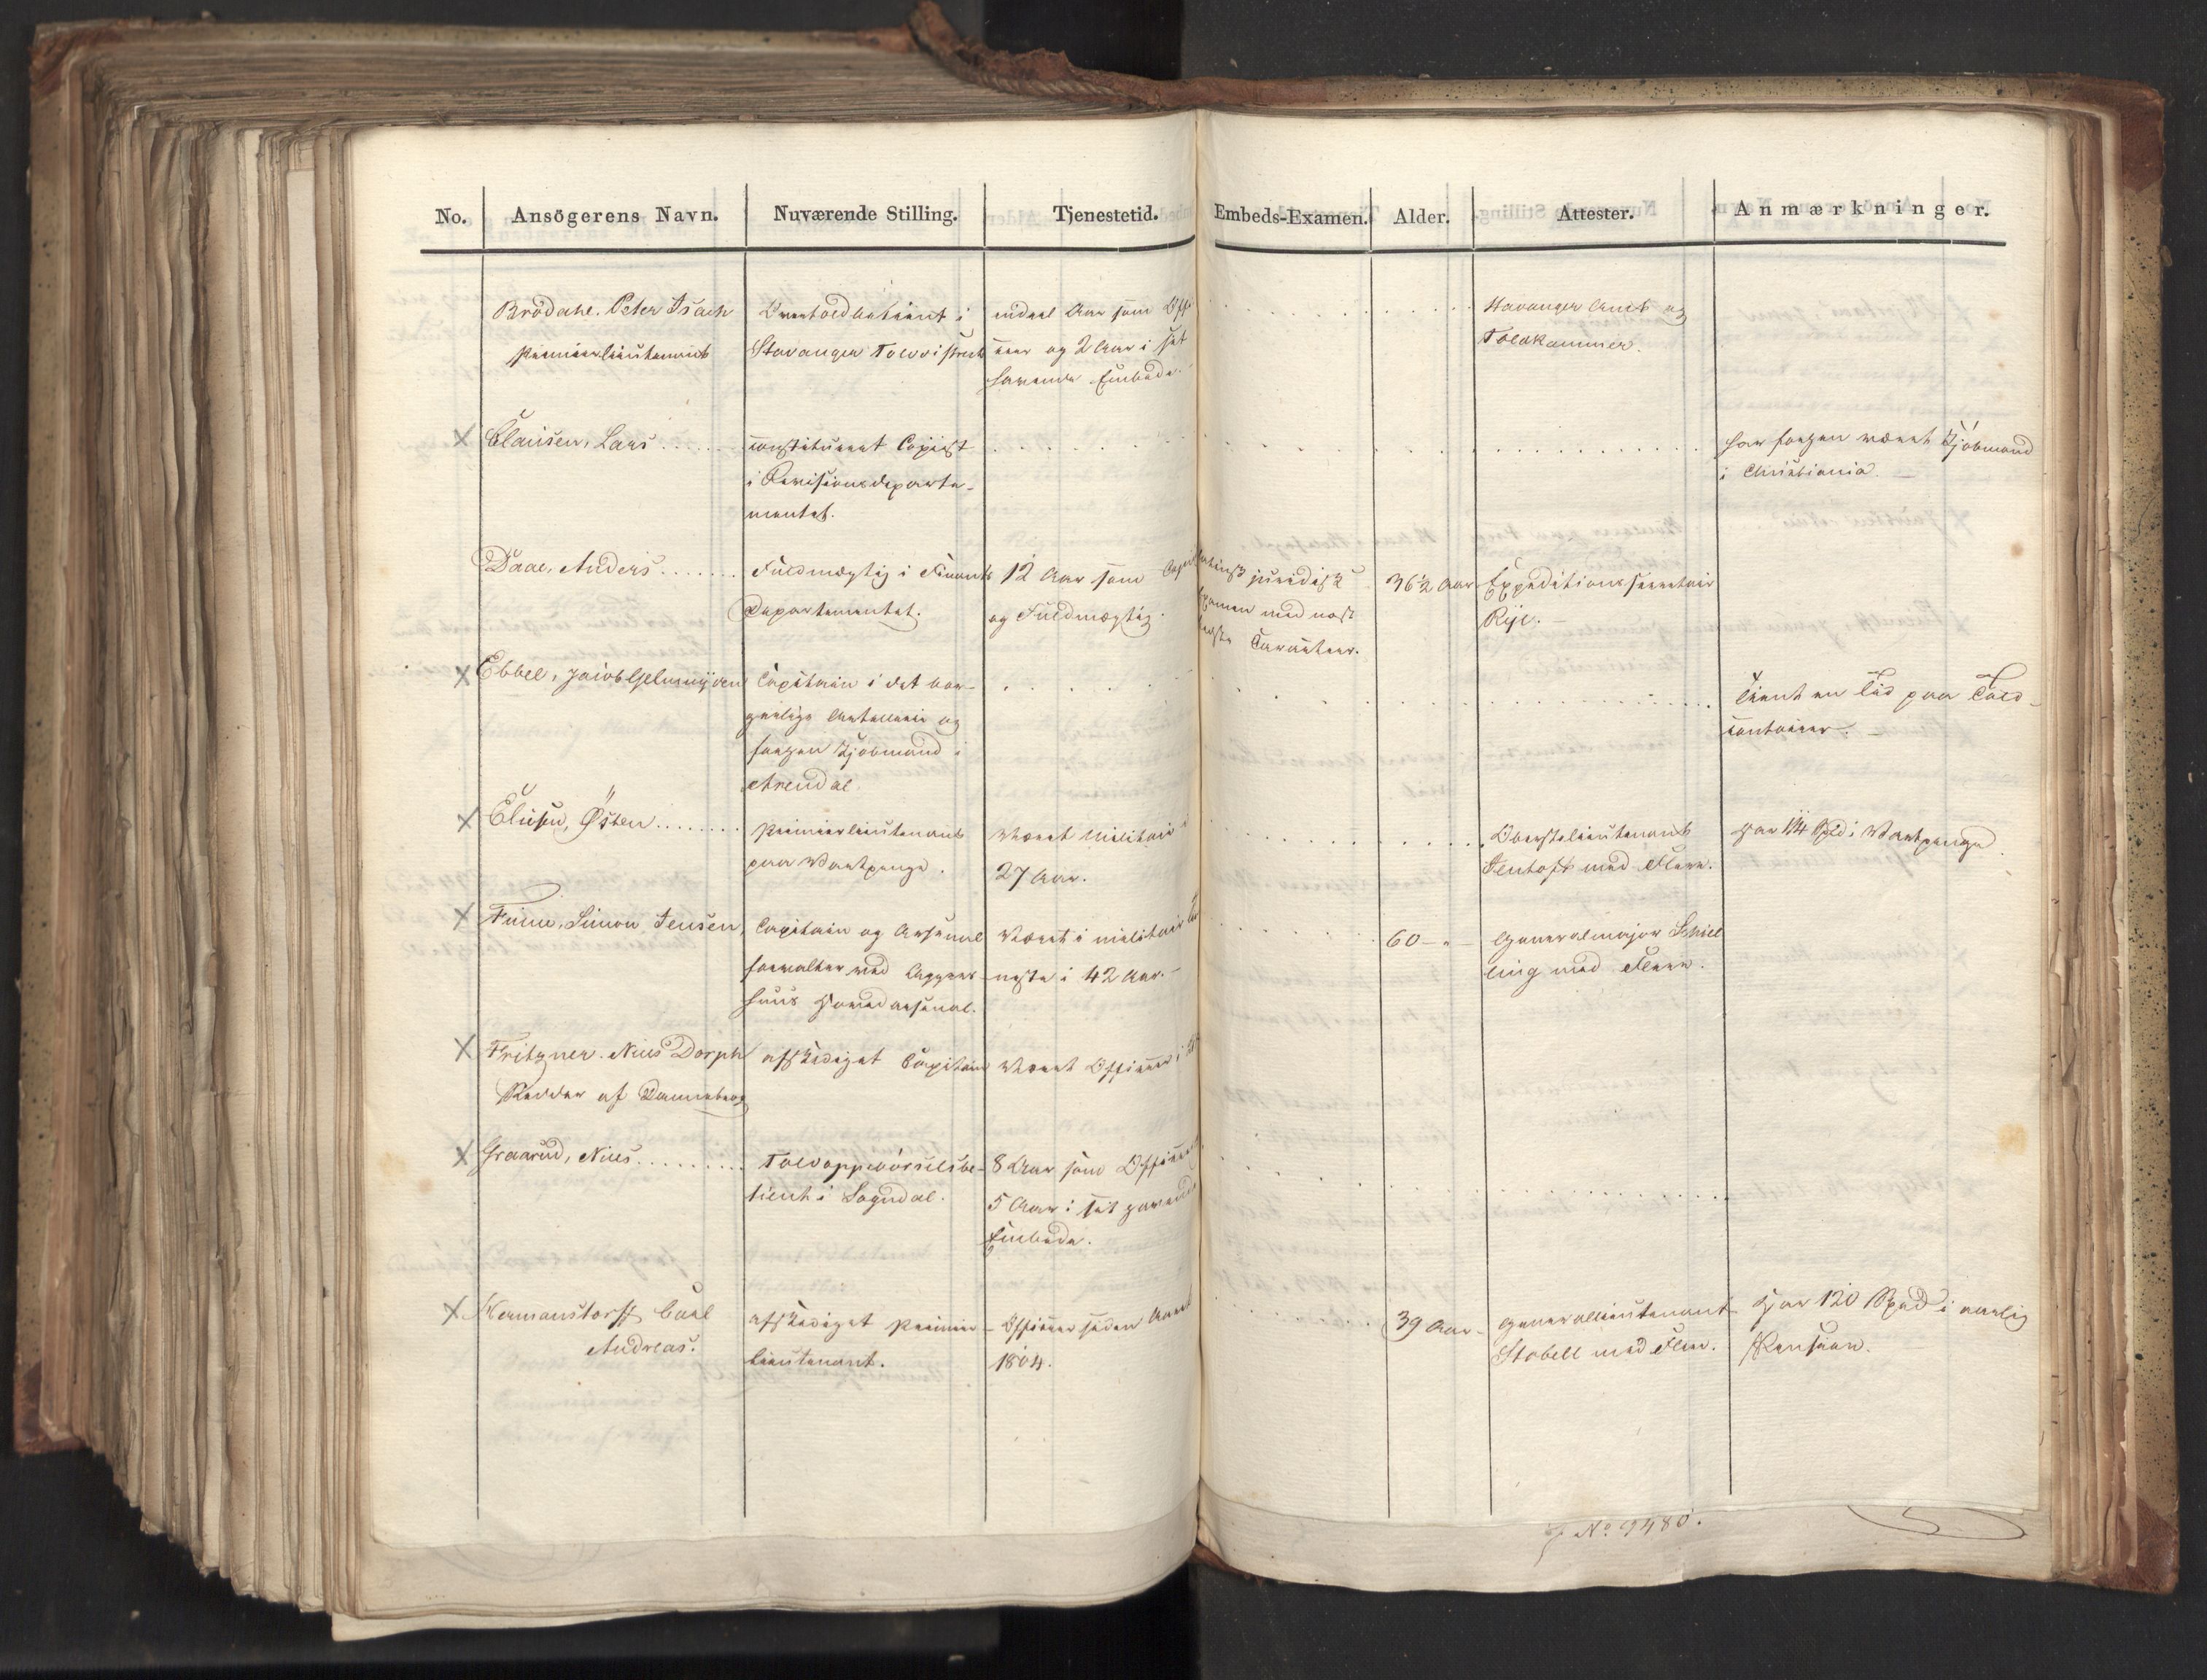 No. Ansögerens Navn. Nuværende Stilling. Tjenestetid. Embeds-Examen. Alder. Attester. Anmærkninger.
Brödahl. Peter Isach
Premierlieutenant
Overtoldbetient i
Stavanger Tolddistrict
endeel Aar som Offi
ceer og 2 Aar i sit
havende Embede.
Stavanger Amt og
Toldkammer.
X Clausen, Lars
constitueret Copiist
i Revisionsdeparte-
mentet.
har forhen været Kjøbmand
i Christiania.
Daae, Anders
Fuldmægtig i Finants
Departementet.
12 Aar som Copiist
og Fuldmægtig.
latinsk juridisk
Examen med næst
beste Caracteer.
36½ Aar
Expeditionssecretair
Rye.
X Ebbel, Jacob Gjelmuyden
Capitain i det bor-
gerlige Artillerie og
forhen Kjøbmand i
Arendal.
tient en Tid paa Told-
contoirer.
X Eliesen, Østen
Premierlieutenant
paa Vartpenge.
Været Militair i
27 Aar.
Oberstlieutenant
Jentoft med Flere.
har 114 Spd i Vartpenge.
X Fine, Simon Jensen,
Capitain og Arsenal
forvalter ved Aggers-
huus Hovedarsenal.
Været i militair Tie
neste i 42 Aar.
60 - " -
Generalmajor Schiel
ling med Flere.
X Fritzner. Niels Dorph
Ridder af Dannebrog
afskediget Capitain
Været Officeer i
X Graarud, Niels
Toldoppebörselsbe-
tient i Sogndal.
8 Aar som Officeer
5 Aar i sit havende
Embede.
X Hermanstorff, Carl
Andreas.
afskediget Premier-
lieutenant.
Officeer siden Aaret
1804.
39 Aar
Generallieutenant
Stabell med Flere.
Har 120 Spd i aarlig
Pension.
No. 9480.